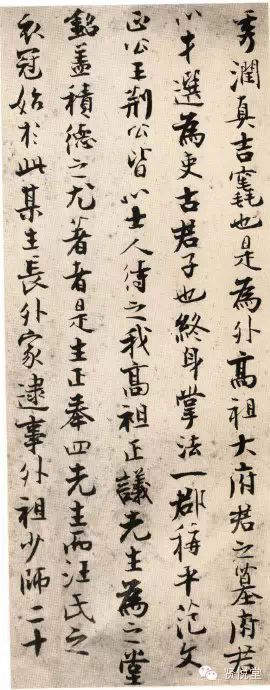 秀潤真吉竁也是為外高祖大府君之墓府君
以才選為吏古君子也終身掌法一郡稱平范文
正公王荊公皆以士人待之我高祖正議先生為之墓
銘蓋積德之尤著者是生正奉四先生而汪氏之
衣冠始於此某生長外家逮事外祖少師二十
贤悦堂